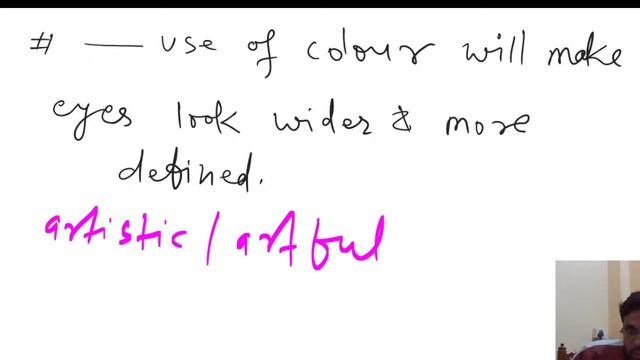 # — use of colour will make
eyes look wider & more
defined.
artistic / artful